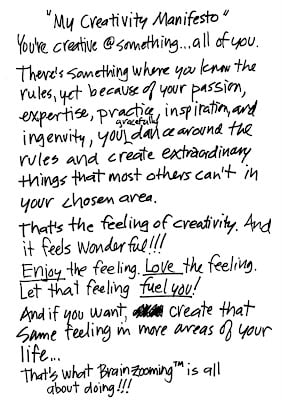 "My Creativity Manifesto"
You're creative @ something... all of you.
There's something where you know the
rules, yet because of your passion,
expertise, practice, inspiration, and
ingenuity, you gracefully dance around the
rules and create extraordinary
things that most others can't in
your chosen area.
That's the feeling of creativity. And
it feels wonderful!!!
Enjoy the feeling. Love the feeling.
Let that feeling fuel you!
And if you want, create that
same feeling in more areas of your
life...
That's what Brainzooming™ is all
about doing!!!